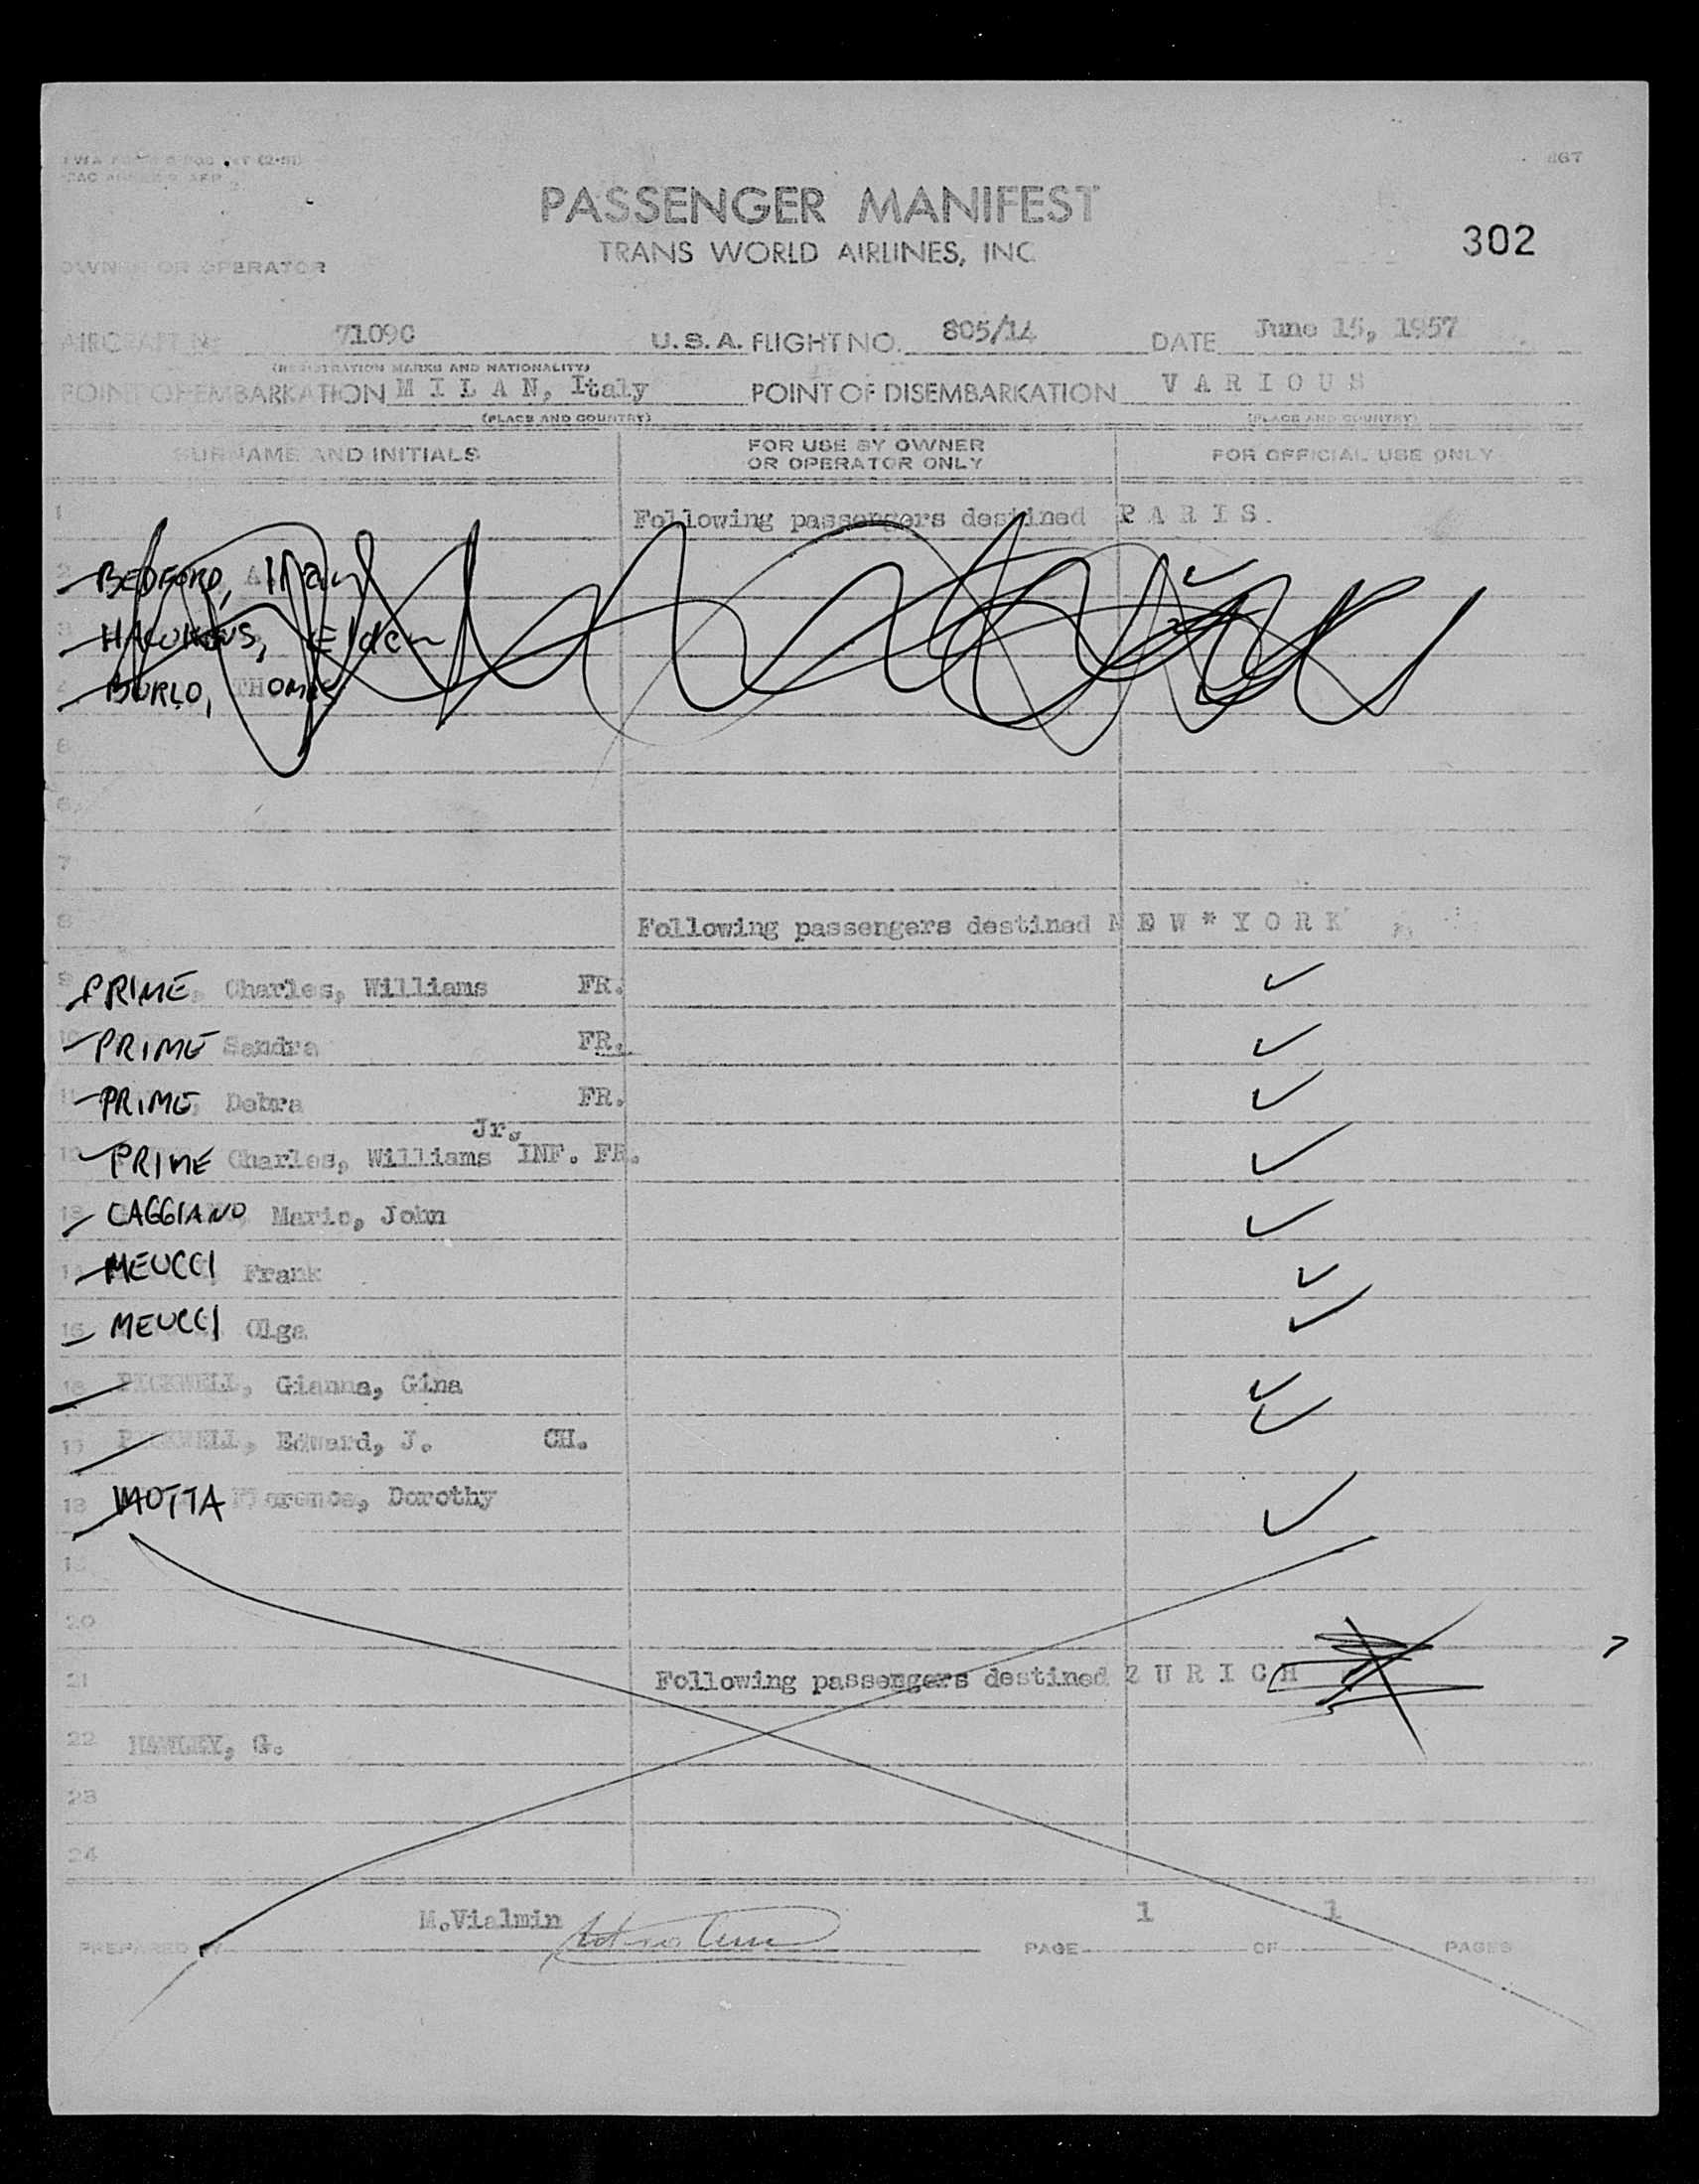 867
PASSENGER MANIFEST
TRANS WORLD AIRLINES, INC
302
OWNER OR OPERATOR
AIRCRAFT No 7109C U.S.A. FLIGHT NO. 805/14 DATE June 15, 1957
(REGISTRATION MARKS AND NATIONALITY)
POINT OF EMBARKATION M I L A N, Italy POINT OF DISEMBARKATION V A R I O U S
(PLACE AND COUNTRY) (PLACE AND COUNTRY)
SURNAME AND INITIALS FOR USE BY OWNER OR OPERATOR ONLY FOR OFFICIAL USE ONLY
1 Following passengers destined P A R I S.
2 BEDFORD,
3 Elden
4 BURLO, THOMAS
5
6
7
8 Following passengers destined N E W * Y O R K
9 PRIME, Charles, Williams FR.
10 PRIME Sandra FR.
11 PRIME, Debra FR.
Jr.
12 PRIME Charles, Williams INF. FR.
13 CAGGIANO, Mario, John
14 MEUCCI, Frank
15 MEUCCI Olga
16 PICKWELL, Gianna, Gina
17 PICKWELL, Edward, J. CH.
18 MOTTA Florence, Dorothy
19
20
21 Following passengers destined Z U R I C H
22 HAWLEY, G.
23
24
M.Vialmin 1 1
PREPARED BY PAGE OF PAGES